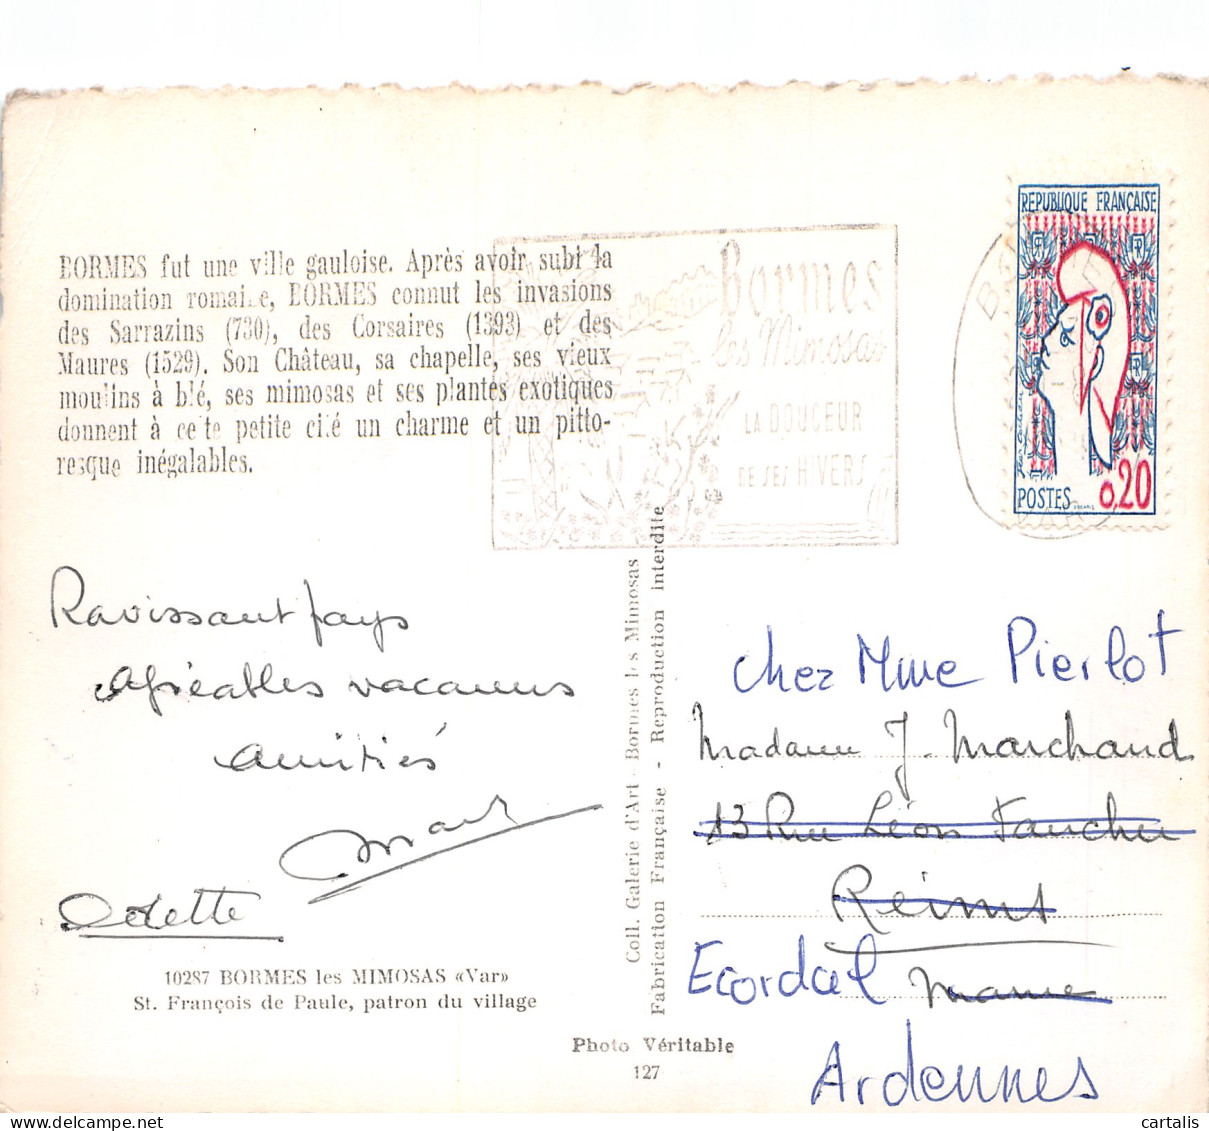 BORMES fut une ville gauloise. Après avoir subi la
domination romaine, BORMES connut les invasions
des Sarrazins (730), des Corsaires (1393) et des
Maures (1529). Son Château, sa chapelle, ses vieux
moulins à blé, ses mimosas et ses plantes exotiques
donnent à cette petite cité un charme et un pitto-
resque inégalables.
Bormes
les Mimosas
LA DOUCEUR
DE SES HIVERS
REPUBLIQUE FRANÇAISE
Jean Cocteau
POSTES
0,20
VAR
Ravissant pays
Agréables vacances
Amitiés
Odette
10287 BORMES les MIMOSAS «Var»
St. François de Paule, patron du village
Coll. Galerie d'Art Bormes les Mimosas
Fabrication Française - Reproduction interdite
Photo Véritable
127
chez Mme Pierlot
Madame J. Marchand
13 Rue Léon Faucher
Reims
Ecordal Marne
Ardennes
cartalis